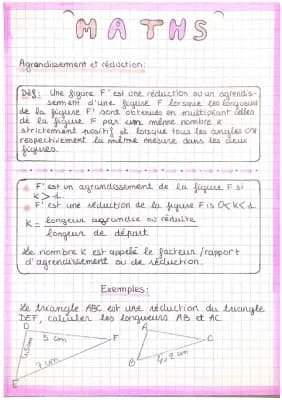 MATHS
Agrandissement et réduction:
Déf: Une figure F' est une réduction ou un agrandis-
sement d'une figure F lorsque les longueurs
de la figure F' sont obtenues en multipliant celles
de la figure F par un même nombre k
strictement positif et lorsque tous les angles ont
respectivement la même mesure dans les deux
figures.
F' est un agrandissement de la figure F si
k > 1.
F' est une réduction de la figure F is 0<k<1.
K = longueur agrandie ou réduite
longueur de départ
Le nombre K est appelé le facteur/rapport
d'agrandissement ou de réduction.
Exemples:
Le triangle ABC est une réduction du triangle
DEF, calculer les longueurs AB et AC.
D
A
5 cm
F
C
7 cm
B
2 cm
E